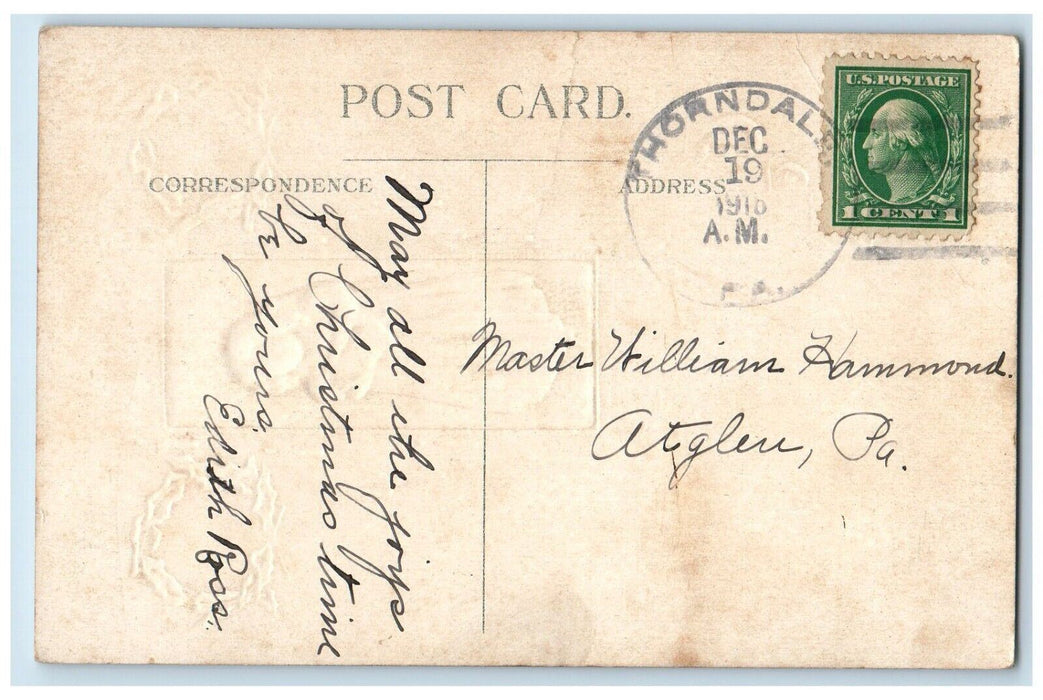 POST CARD.
CORRESPONDENCE
ADDRESS
THORNDALE
DEC
19
A.M.
PA.
U.S. POSTAGE
1 CENT 1
May all the joys
of Christmas time
be yours.
Edith Ross.
Master William Hammond.
Atglen, Pa.